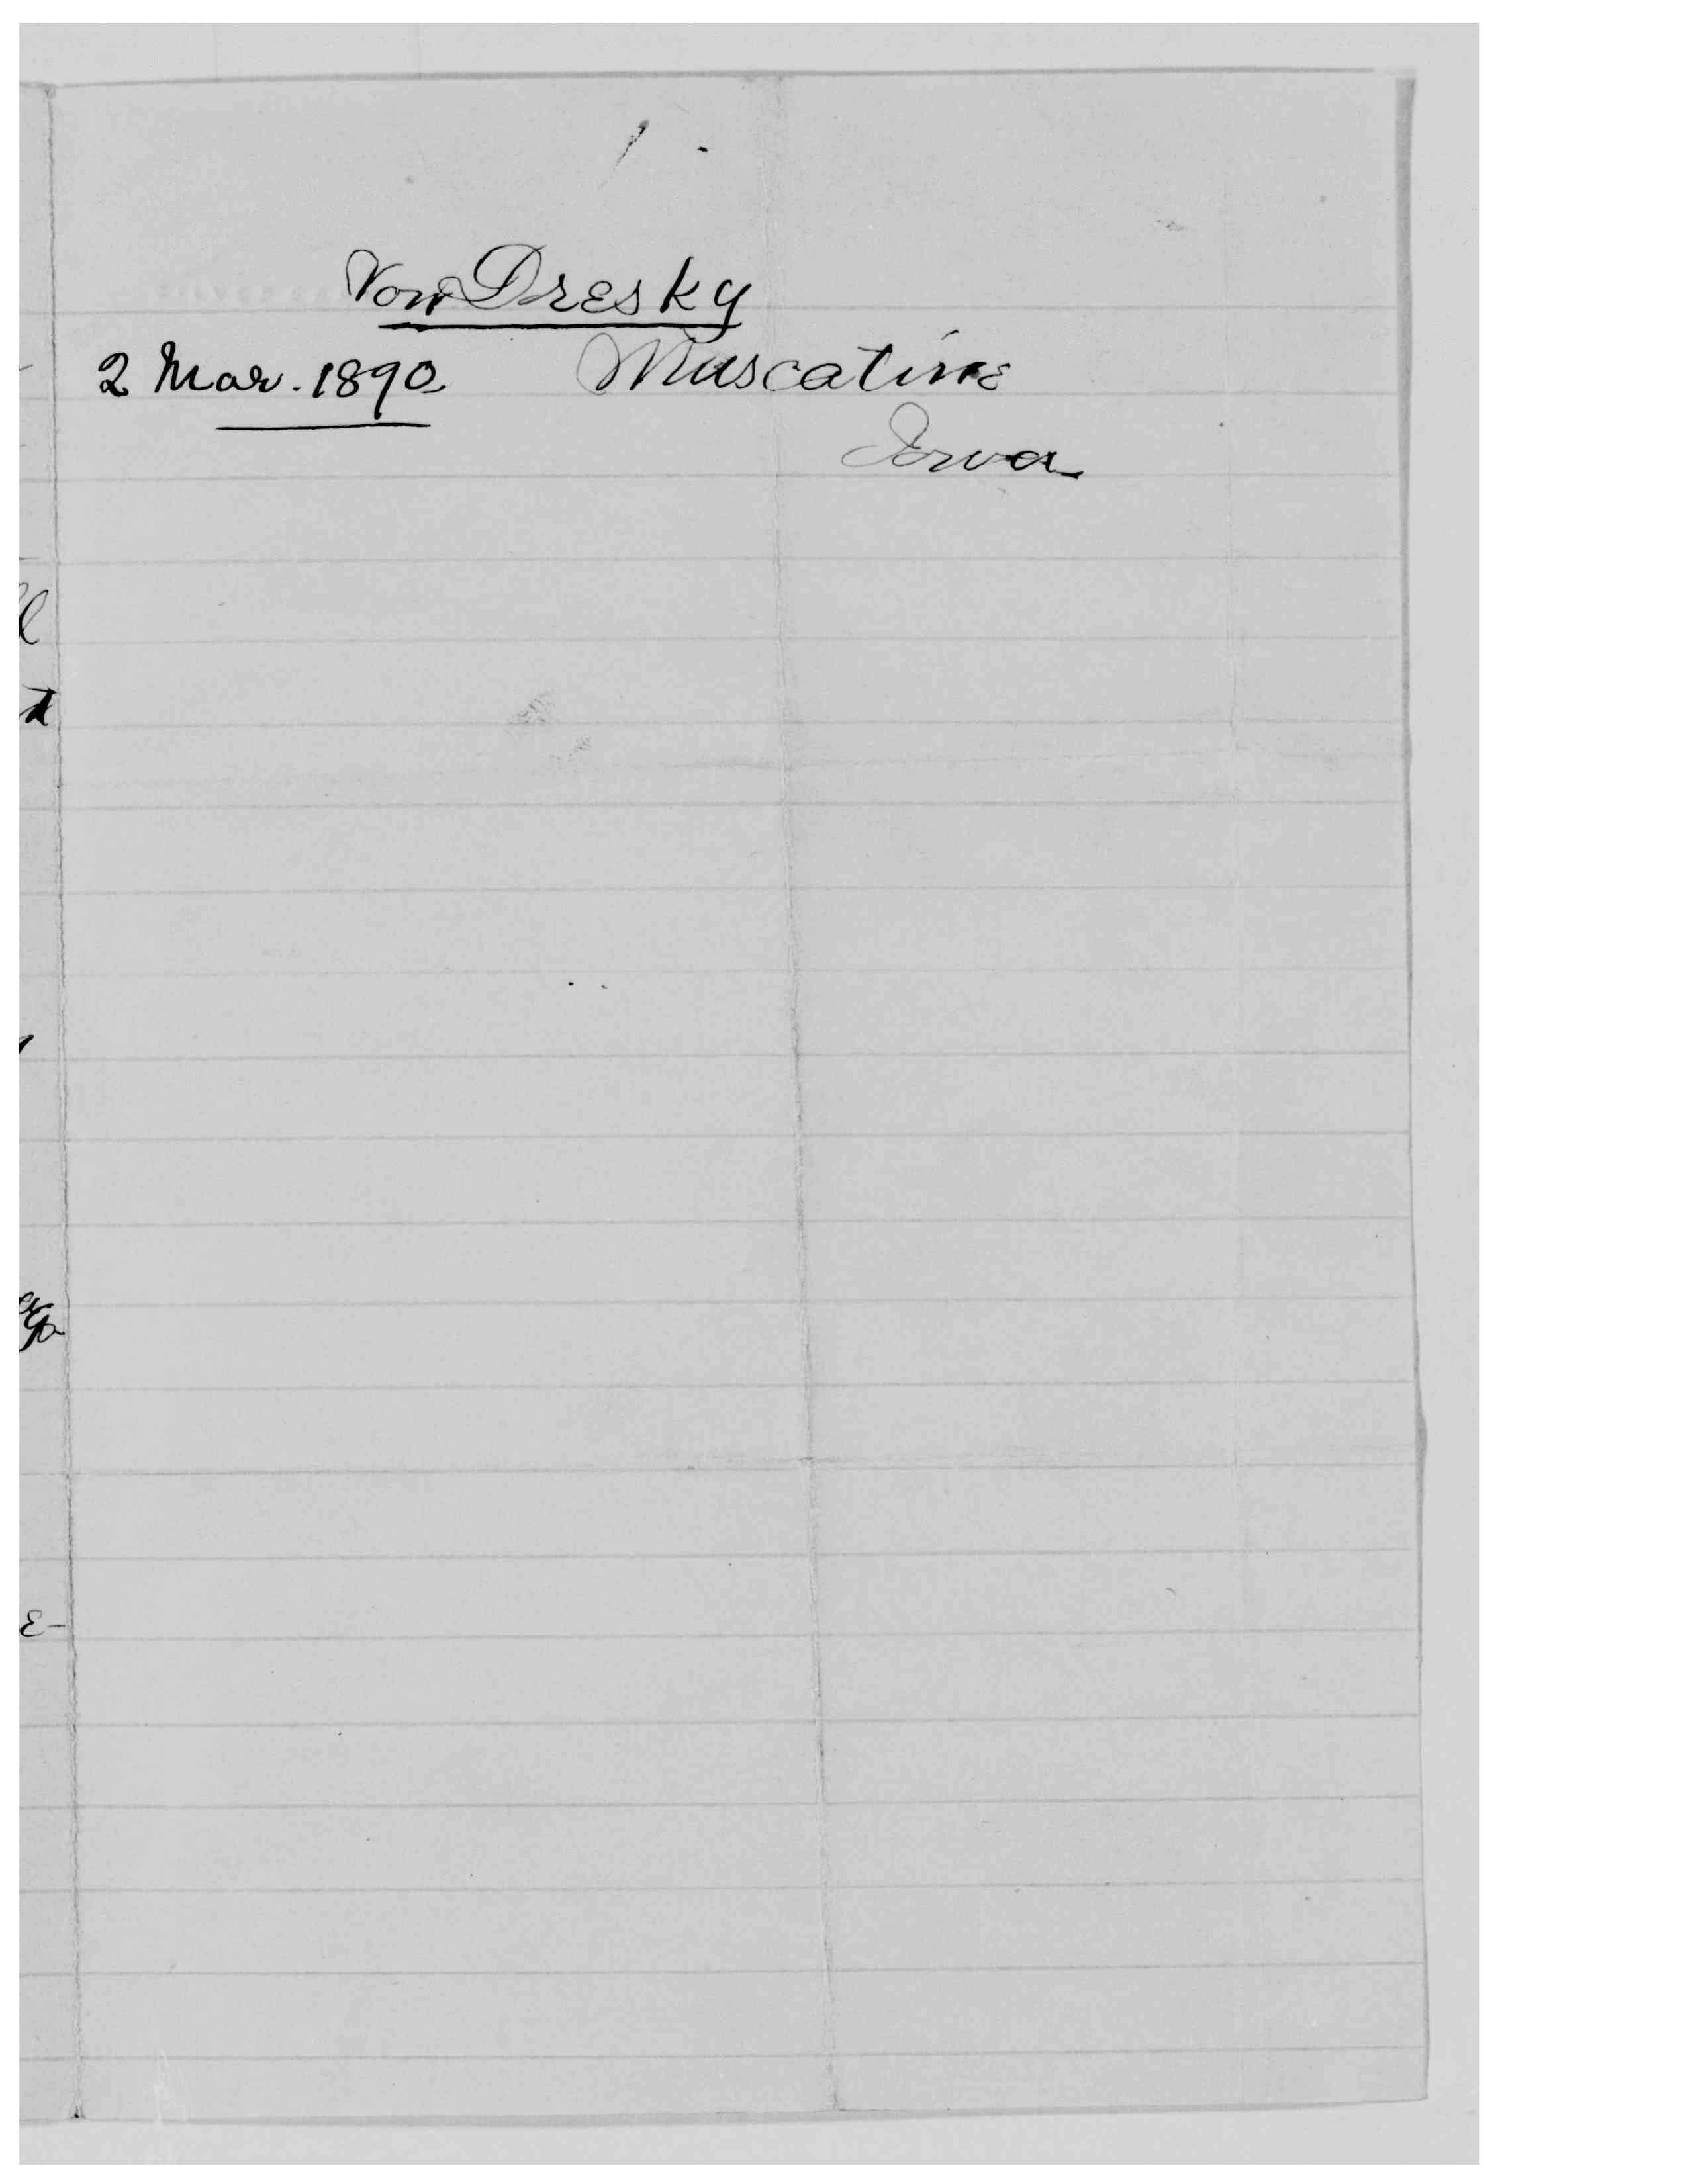 Von Dresky
2 Mar. 1890 Muscatine
Iowa